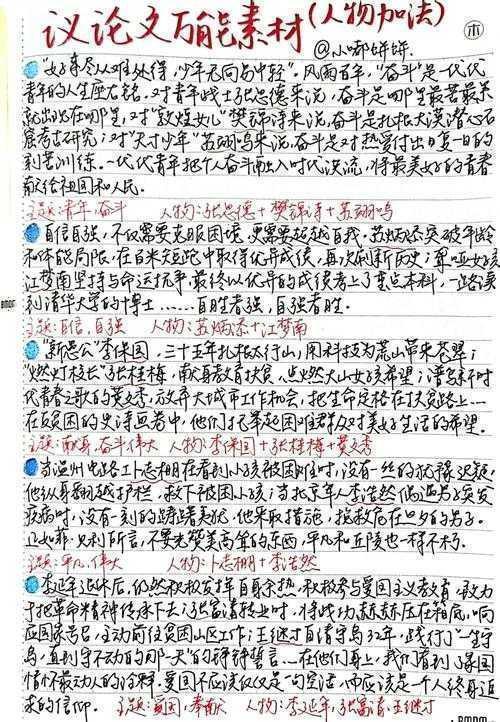 议论文万能素材(人物加法)
@小嘟蛴蛴.
"好事尽从难处得，少年无向易中轻"。风雨百年，"奋斗"是一代代
青年的人生座右铭。对青年战士张思德来说，奋斗是哪里最苦最累
就出现在哪里，对"敦煌女儿"樊锦诗来说，奋斗是扎根大漠潜心石
窟考古研究；对"天才少年"苏翊鸣来说，奋斗是对热爱付出日复一日的
刻苦训练。一代代青年把个人奋斗融入时代洪流，将最美好的青春
献给祖国和人民。
主题：青年，奋斗 人物：张思德+樊锦诗+苏翊鸣
自信自强，不仅需要克服困境，更需要超越自我。苏炳添突破年龄
和体能局限，在百米短跑中取得优异成绩，再次刷新历史；聋哑女孩
江梦南坚持与命运抗争，最终以优异的成绩考上了重点本科，一路读
到清华大学的博士……自胜者强，自强者胜。
主题：自信，自强 人物：苏炳添+江梦南
"新愚公"李保国，三十五年扎根太行山，用科技为荒山带来苍翠；
"燃灯校长"张桂梅，献身教育扶贫，点燃大山女孩希望；谱写新时
代青春之歌的黄文秀，放弃大城市工作机会，把生命定格在扶贫路上……
在反贫困的史诗画卷中，他们托举起困难群众对美好生活的希望。
主题：献身，奋斗，伟大 人物：李保国+张桂梅+黄文秀
当温州电路工卜志相在看到小孩被困难时，没有一丝的犹豫迟疑，
他纵身翻越护栏，救下被困小孩；当北京年人李浩然偶遇男子突发
疾病时，没有一刻的踌躇莫展，他采取措施，挽救危在旦夕的男子。
正如菲·贝利所言，不要光赞美高耸的东西，平凡和丘陵也一样不朽。
主题：平凡，伟大 人物：卜志相+李浩然
李延年退休后，仍然积极发挥自身余热，积极参与爱国主义教育，致力
于把革命精神传承下去；张富清转业时，将战功赫赫压在箱底，响
应国家号召，主动前往贫困山区工作；王继才自请守岛32年，践行了"守
岛，直到守不动的那一天"的铮铮誓言……在他们身上，我们看到了家国
情怀最动人的诠释。爱国不应该仅仅是一句空话，而应该是一个人终身追
求的信仰。 主题：爱国，奉献 人物：李延年，张富清+王继才